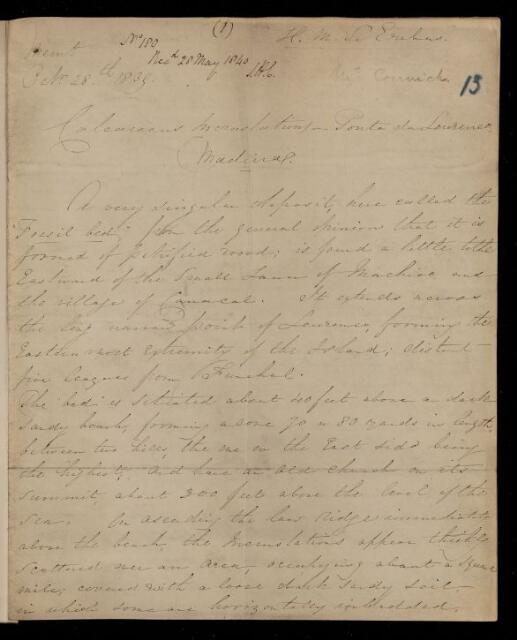 (1)
Nº 180
H. M. S. Erebus.
Recd 28 May 1840
Octr 28th 1839.
Mr Cormick
13
Calcareous Incrustations – Ponta da Lourenco,
Madeira.
A very singular deposit, here called the
"Fossil bed" from the general opinion that it is
formed of petrified wood; is found a little to the
Eastward of the small Town of Machico and
the village of Canacal. It extends across
the long narrow point of Lourenco, forming the
Eastern most extremity of the Island; distant
five leagues from Funchal.
The bed is situated about 40 feet above a dark
sandy beach, forming a cove 70 or 80 yards in length,
between two hills, the one on the East side being
the highest, and have an old church on its
summit, about 200 feet above the level of the
Sea. On ascending the low ridge immediately
above the beach, the Incrustations appear thickly
scattered over an area, occupying about a square
mile; covered with a loose dark sandy soil
in which some are horizontally imbedded,